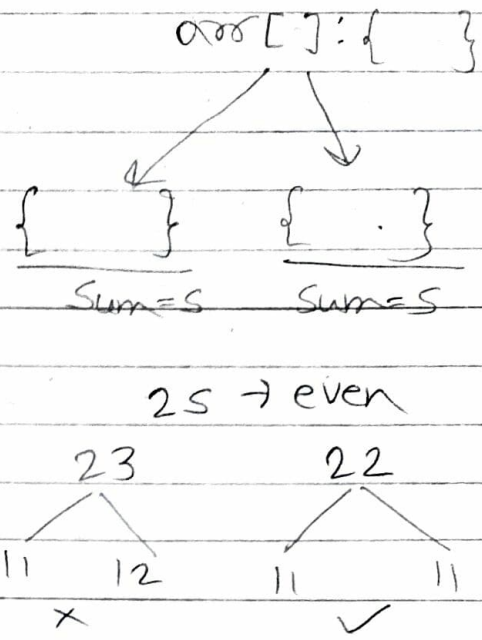 arr[ ]:{ }
{ } { . }
Sum=S Sum=S
2S → even
23 22
11 12 11 11
× ✓